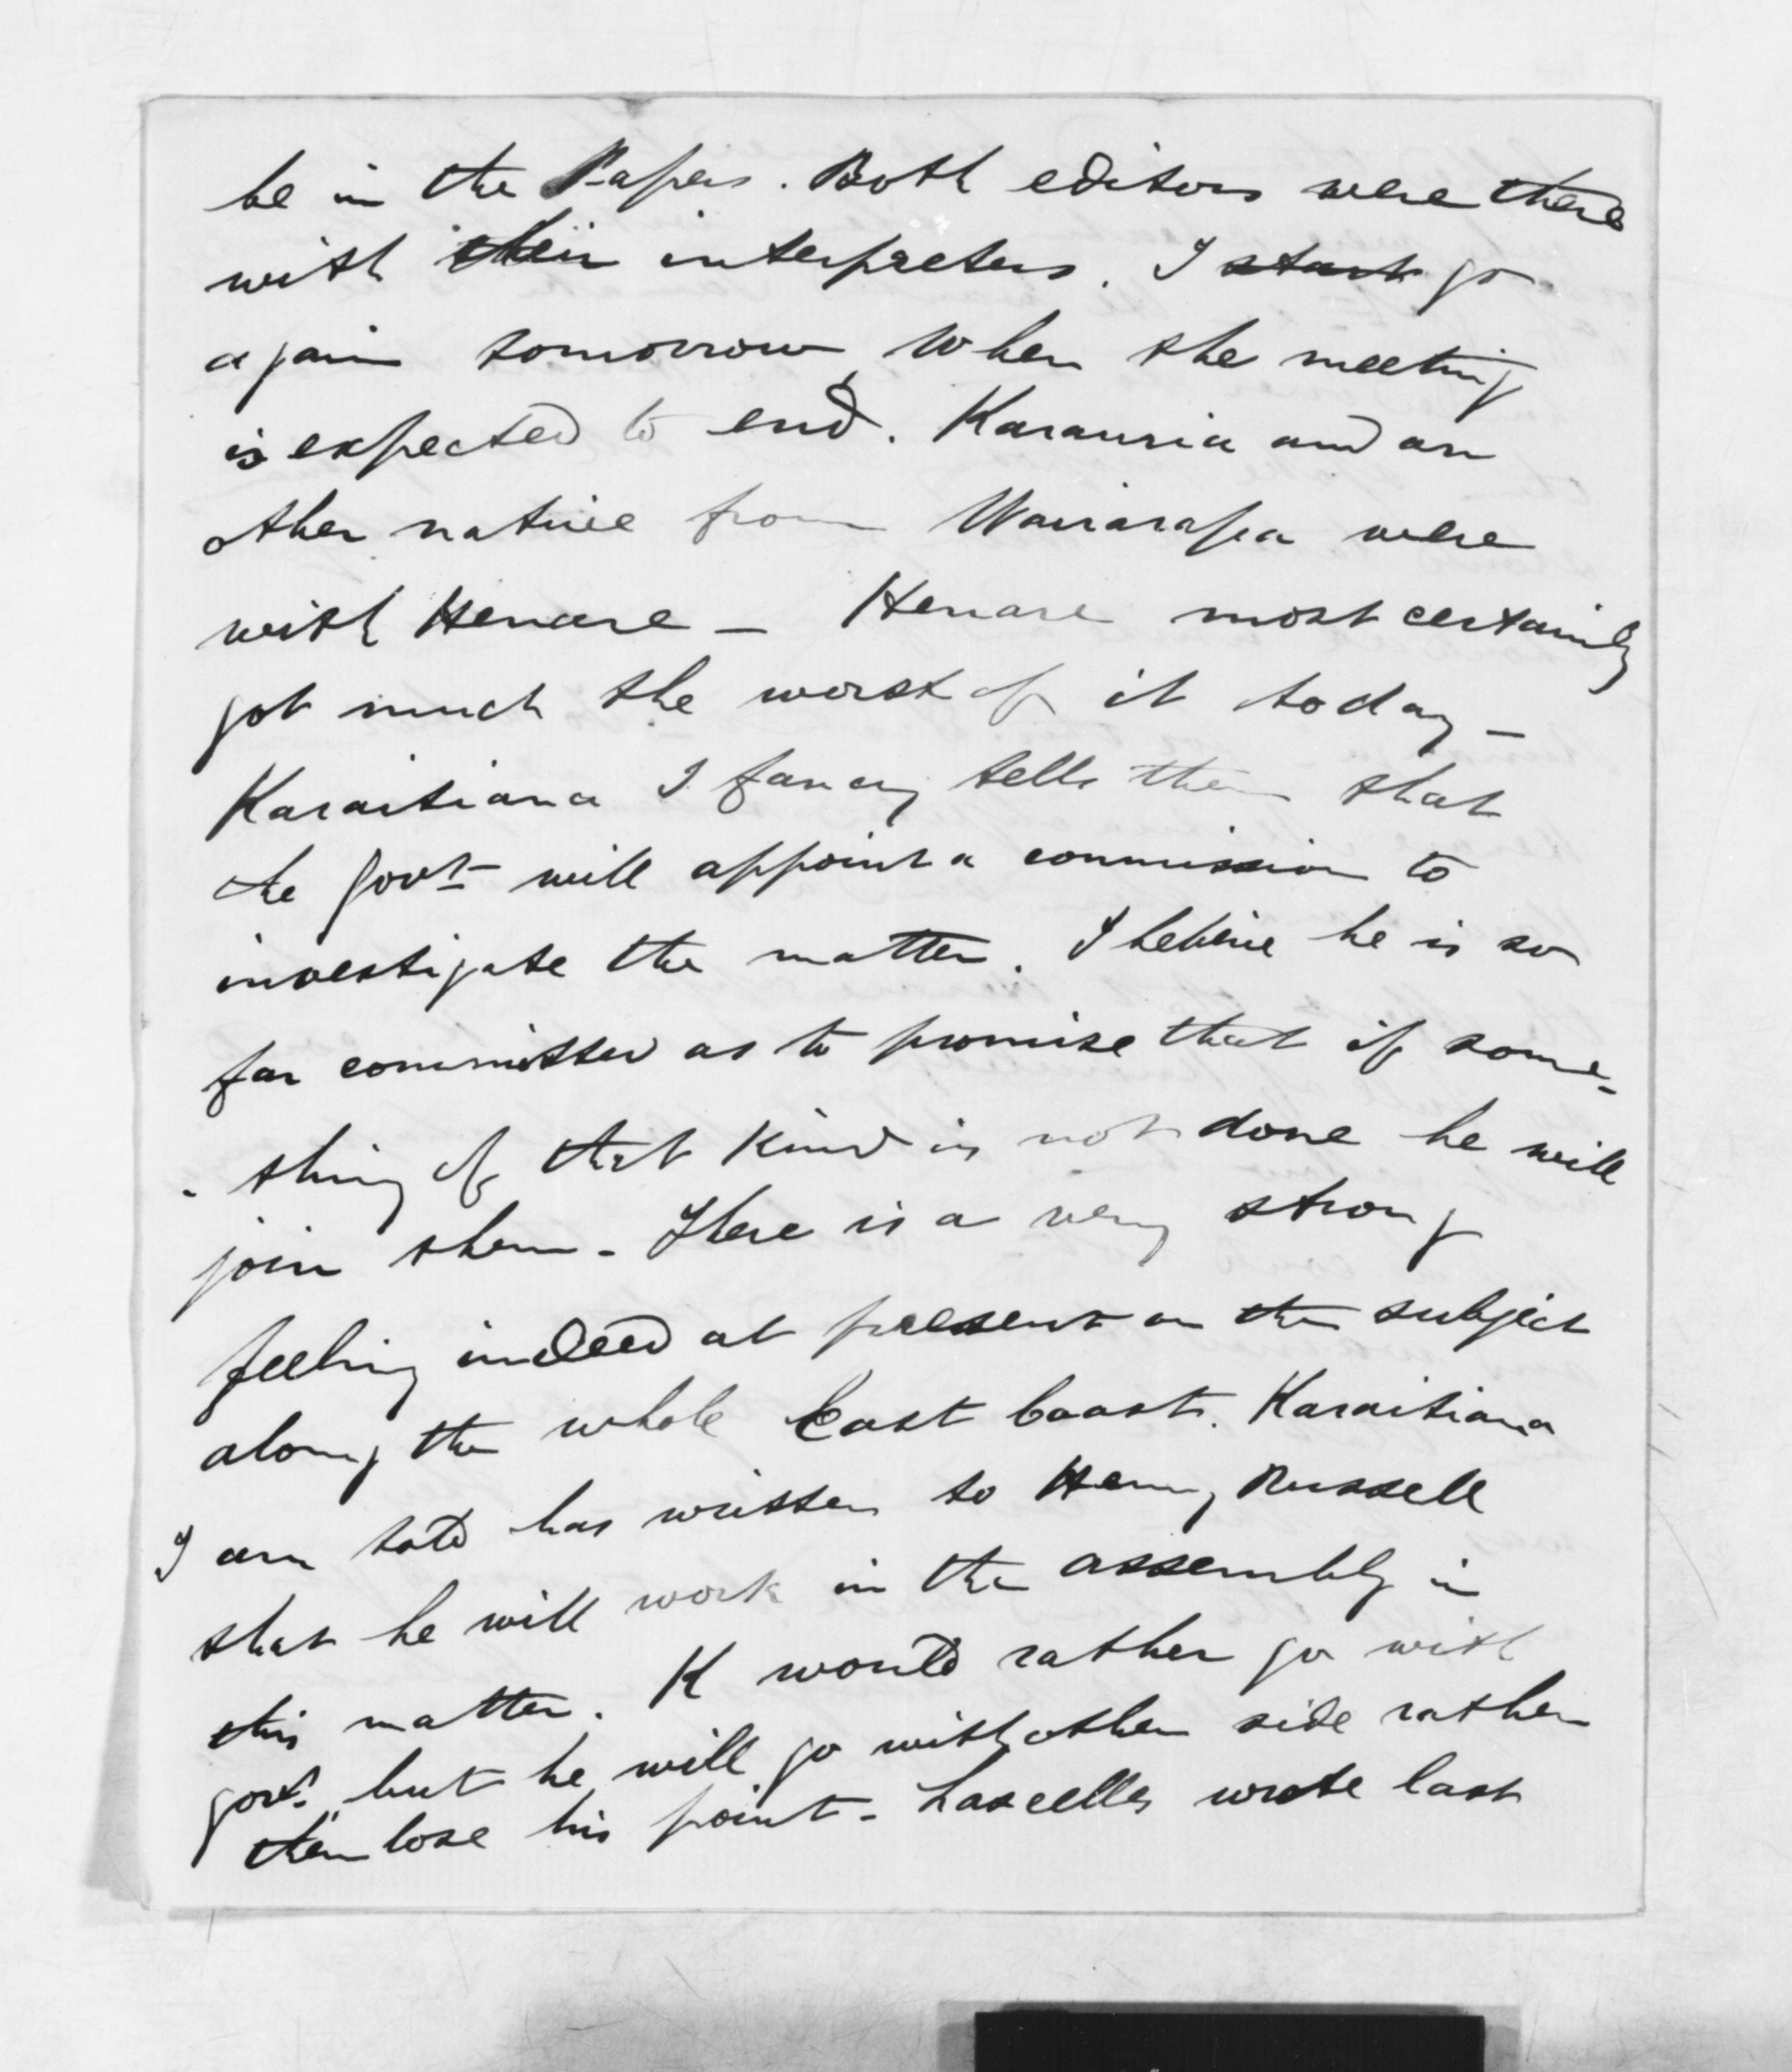 be in the Papers. Both editors were there
with their interpreters. I start go
again tomorrow, when the meeting
is expected to end. Karauria and an
other native from Wairarapa were
with Henare – Henare most certainly
got much the worst of it today –
Karaitiana I fancy tells them that
the Govt will appoint a commission to
investigate the matter. I believe he is so
far committed as to promise that if some-
-thing of that kind is not done he will
join them – There is a very strong
feeling indeed at present on the subject
along the whole East Coast. Karaitiana
I am told has written to Henry Russell
that he will work in the assembly in
this matter. K would rather go with
govt. but he will go with other side rather
then lose his point – Lascelles wrote last